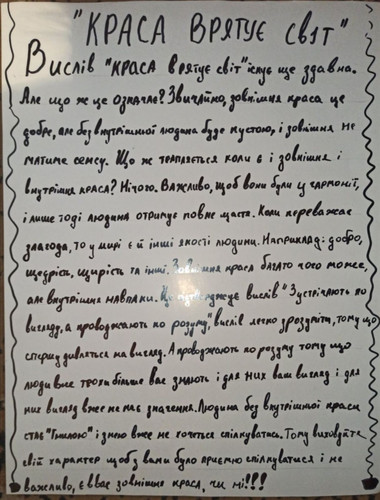 "КРАСА ВРЯТУЄ СВІТ"
Вислів "краса врятує світ" існує ще здавна.
Але що ж це означає? Звичайно, зовнішня краса це
добре, але без внутрішньої людина буде пустою, і зовнішня не
матиме сенсу. Що ж трапляється коли є і зовнішня і
внутрішня краса? Нічого. Важливо, щоб вони були у гармонії,
і лише тоді людина отримує повне щастя. Коли переважає
злагода, то у мирі є й інші якості людини. Наприклад: добро,
щедрість, щирість та інші. Зовнішня краса багато чого може,
але внутрішня навпаки. Це підтверджує вислів "Зустрічають по
вигляду, а проводжають по розуму", вислів легко зрозуміти, тому що
спершу дивляться на вигляд. А проводжають по розуму тому що
люди вже трохи більше вас знають і для них ваш вигляд і для
них вигляд вже не має значення. Людина без внутрішньої краси
стає "гнилою" і з нею вже не хочеться спілкуватись. Тому виховуйте
свій характер щоб з вами було приємно спілкуватися і не
важливо, є в вас зовнішня краса, чи ні!!!